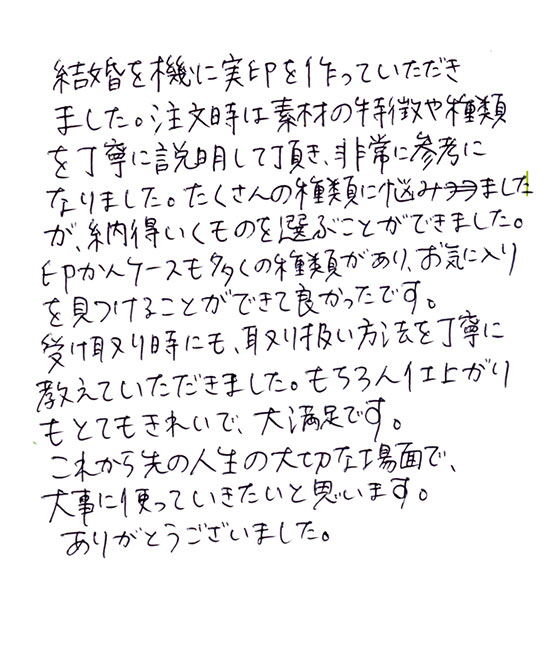 結婚を機に実印を作っていただき
ました。注文時は素材の特徴や種類
を丁寧に説明して頂き、非常に参考に
なりました。たくさんの種類に悩みました
が、納得いくものを選ぶことができました。
印かんケースも多くの種類があり、お気に入り
を見つけることができて良かったです。
受け取り時にも、取り扱い方法を丁寧に
教えていただきました。もちろん仕上がり
もとてもきれいで、大満足です。
これから先の人生の大切な場面で、
大事に使っていきたいと思います。
ありがとうございました。